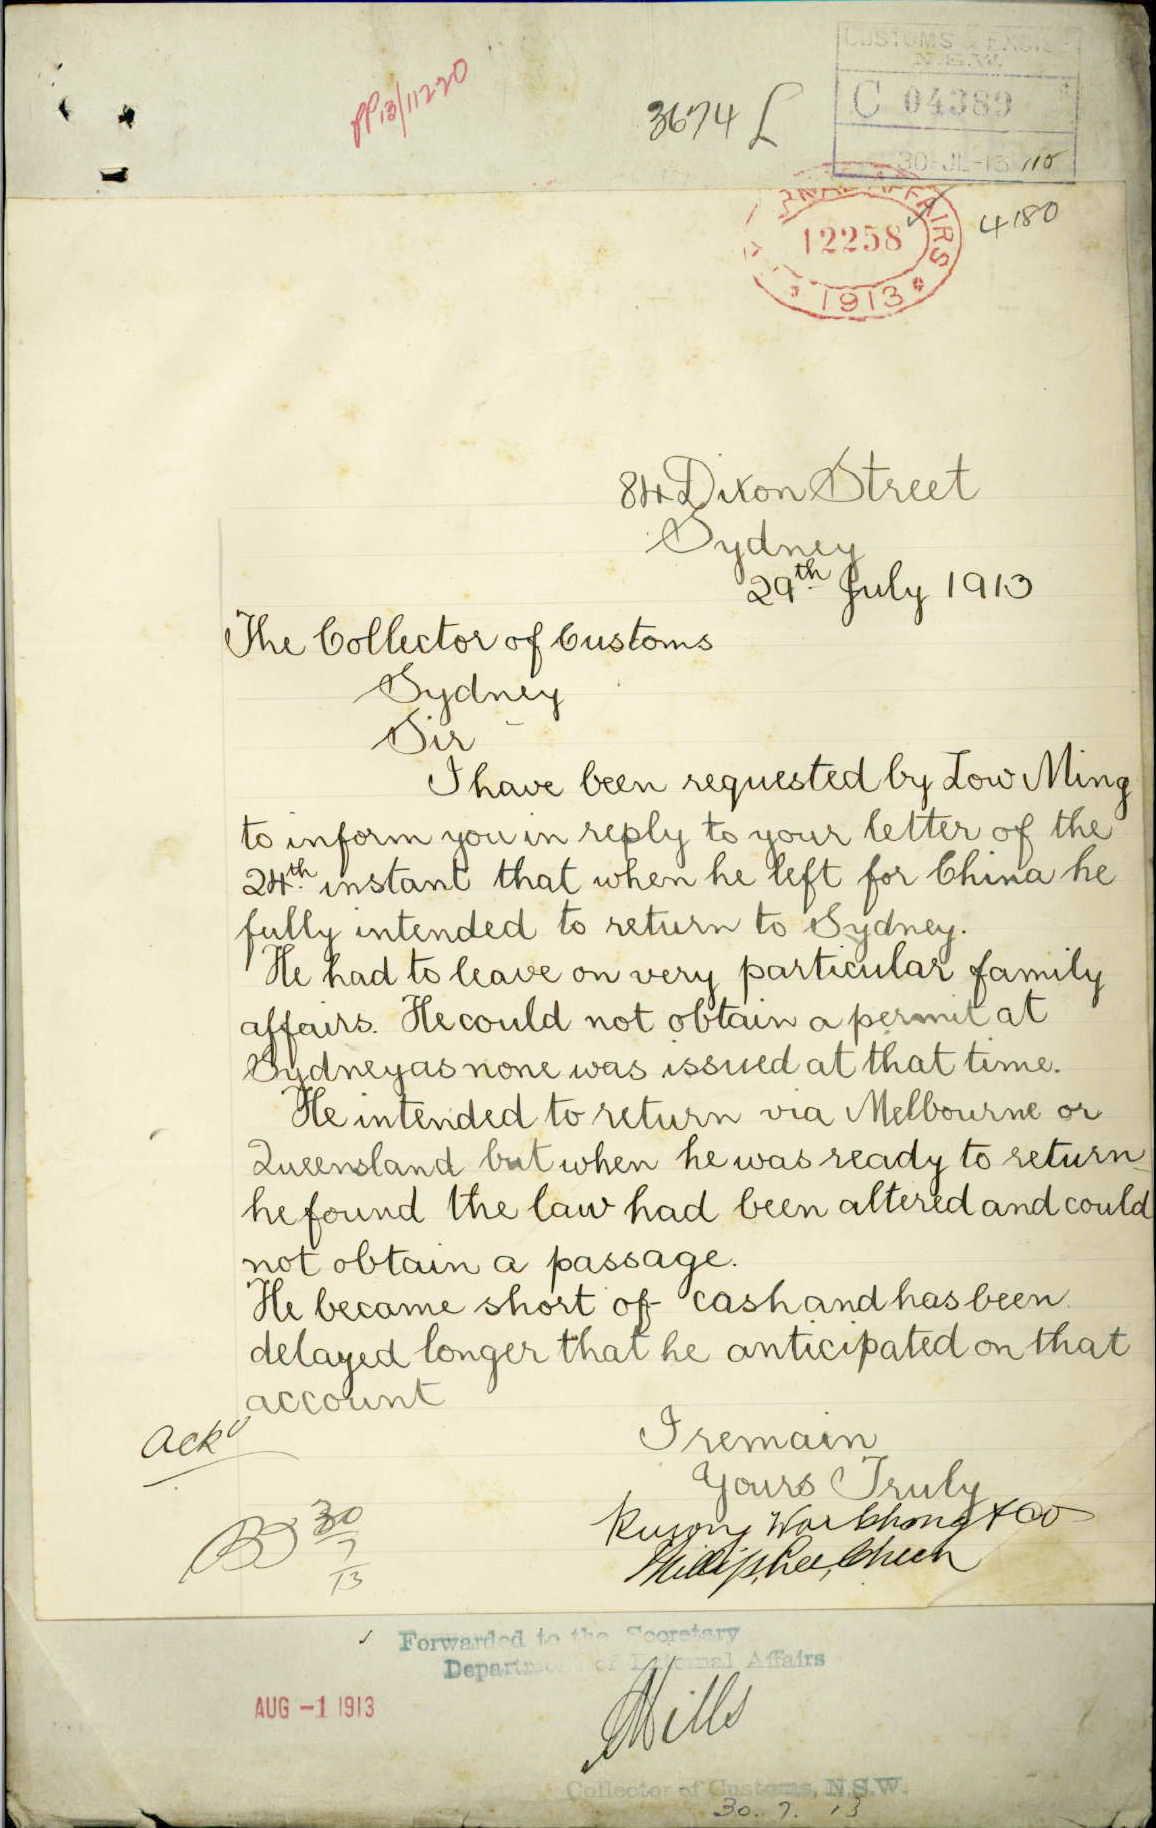 PP13/11220
3674 L
CUSTOMS & EXCISE
N.S.W.
C 04389
30-JL-13 110
AFFAIRS
12258
1913
4180
84 Dixon Street
Sydney
29th July 1913
The Collector of Customs
Sydney
Sir
I have been requested by Low Ming
to inform you in reply to your letter of the
24th instant that when he left for China he
fully intended to return to Sydney.
He had to leave on very particular family
affairs. He could not obtain a permit at
Sydney as none was issued at that time.
He intended to return via Melbourne or
Queensland but when he was ready to return
he found the law had been altered and could
not obtain a passage.
He became short of cash and has been
delayed longer that he anticipated on that
account
Ackd
I remain
Yours Truly
30
7
13
Kwong War Chong & Co
Phillip Lee Chun
Forwarded to the Secretary
Department of External Affairs
AUG -1 1913
Mills
Collector of Customs, N.S.W.
30. 7. 13